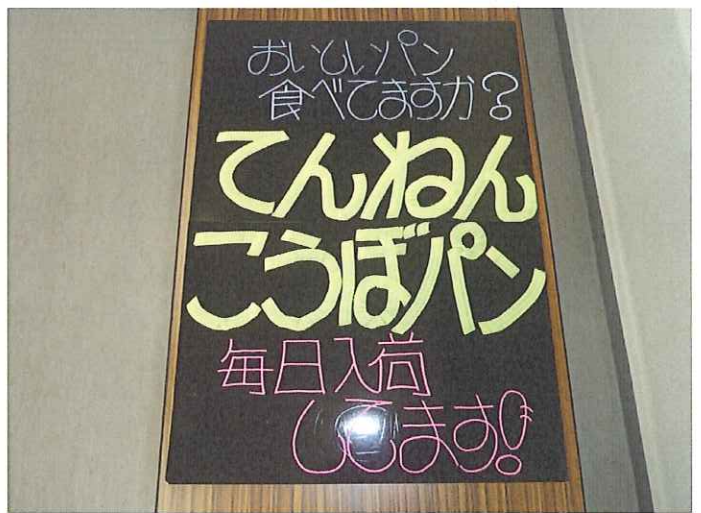 おいしいパン
食べてますか?
てんねん
こうぼパン
毎日入荷
してます!